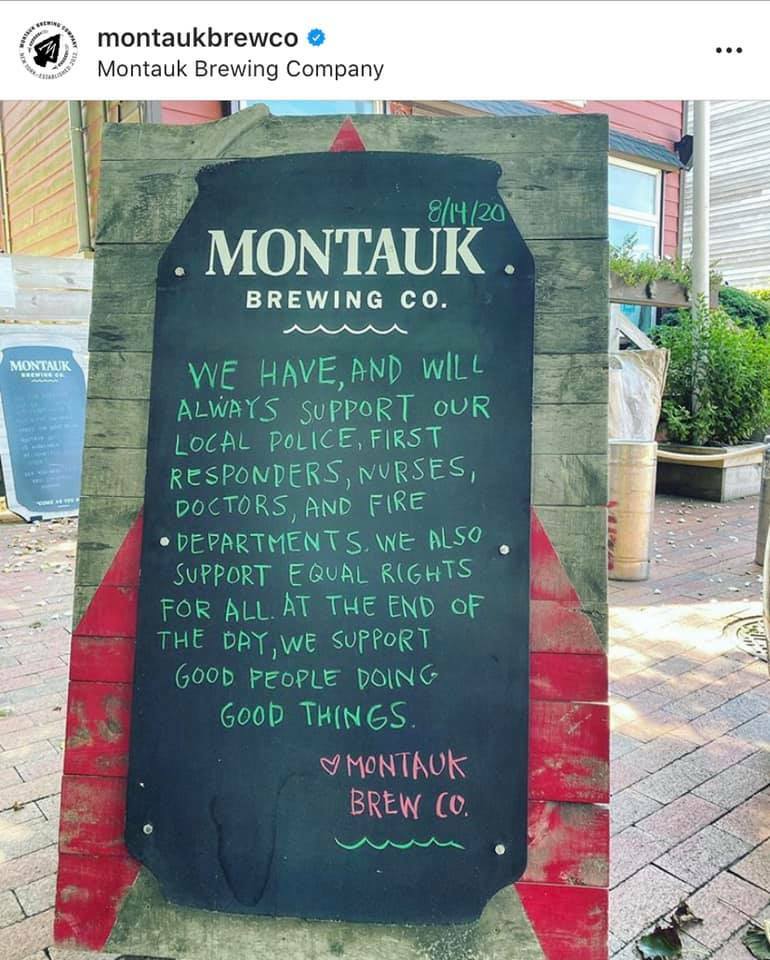 montaukbrewco
Montauk Brewing Company
8/14/20
MONTAUK
BREWING CO.
WE HAVE, AND WILL
ALWAYS SUPPORT OUR
LOCAL POLICE, FIRST
RESPONDERS, NURSES,
DOCTORS, AND FIRE
DEPARTMENTS. WE ALSO
SUPPORT EQUAL RIGHTS
FOR ALL. AT THE END OF
THE DAY, WE SUPPORT
GOOD PEOPLE DOING
GOOD THINGS.
♡ MONTAUK
BREW CO.
MONTAUK
BREWING CO.